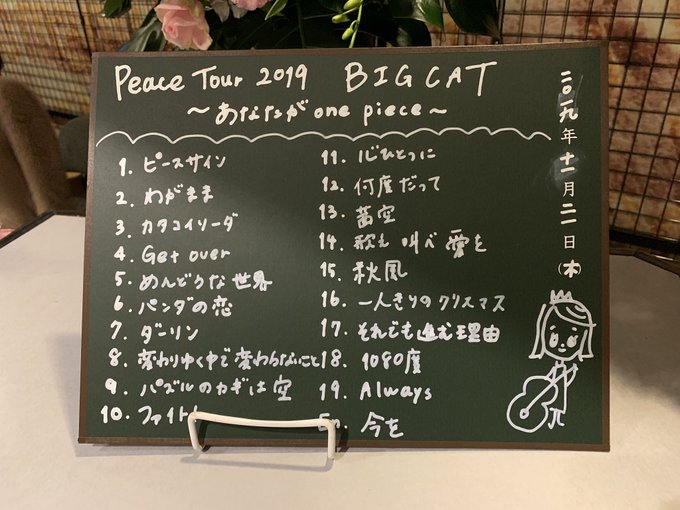 Peace Tour 2019 BIG CAT
～あなたが one piece～
二〇一九年十一月二一日(木)
1. ピースサイン
2. わがまま
3. カタコイリーダ
4. Get over
5. めんどうな世界
6. パンダの恋
7. ダーリン
8. 変わりゆく中で変わらないこと
9. パズルのカギは空
10. ファイト!
11. 心ひとつに
12. 何度だって
13. 茜空
14. 歌え 叫べ 愛を
15. 秋風
16. 一人きりのクリスマス
17. それでも進む理由
18. 1080度
19. Always
今を